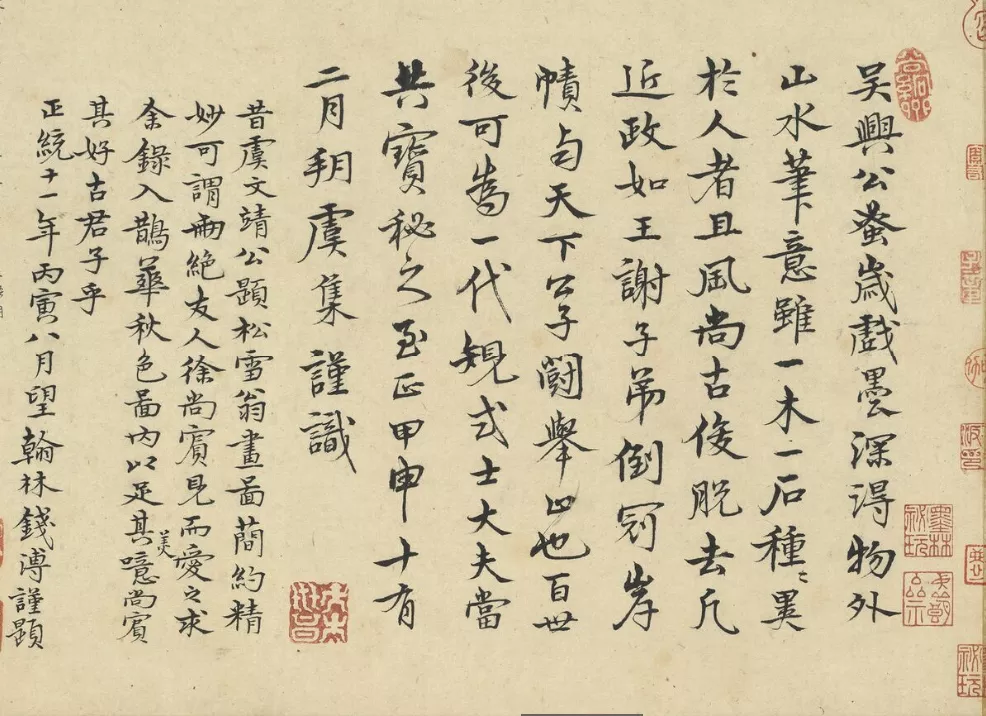 吴興公蚤歲戲墨深淂物外
山水筆意雖一木一石種〻異
於人者且風尚古俊脫去凡
近政如王謝子弟倒冠岸
幘与天下公子鬪舉止也百世
後可為一代規式士大夫當
共寳秘之至正甲申十有
二月朔虞集謹識
昔虞文靖公題松雪翁畫啚蕑約精
妙可謂兩絶友人徐尚賓見而愛之求
余錄入鵲華秋色啚內以足其美噫尚賓
其好古君子乎
正統十一年丙寅八月望翰林錢溥謹題